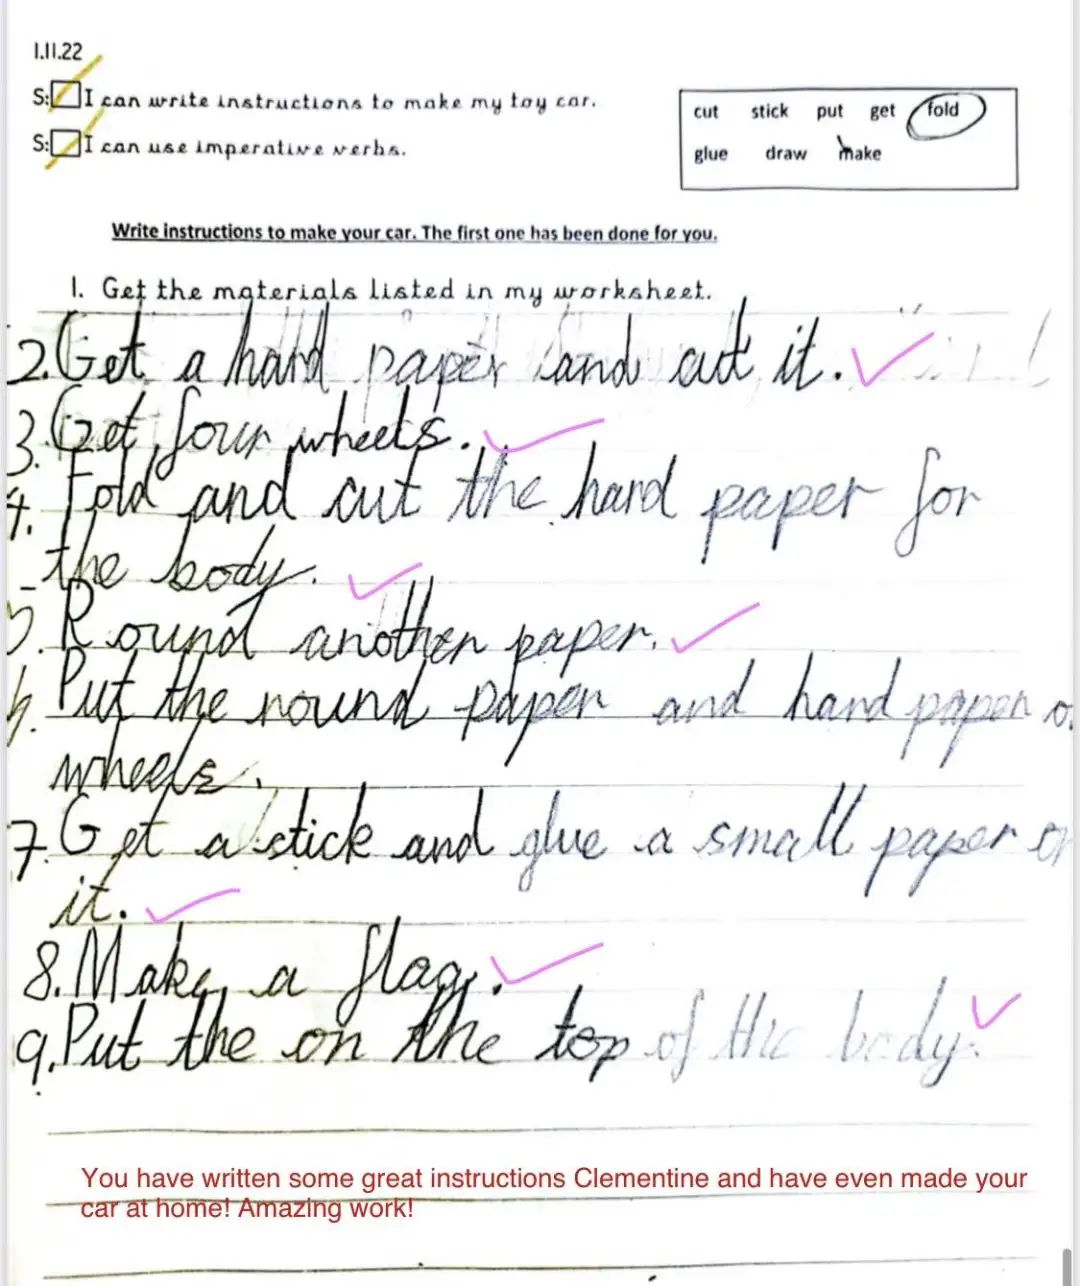 1.11.22
S: I can write instructions to make my toy car.
S: I can use imperative verbs.
cut stick put get fold
glue draw make
Write instructions to make your car. The first one has been done for you.
1. Get the materials listed in my worksheet.
2. Get a hard paper and cut it.
3. Get four wheels.
4. Fold and cut the hard paper for
the body.
5. Round another paper.
6. Put the round paper and hard paper
wheels.
7. Get a stick and glue a small paper
it.
8. Make a flag.
9. Put the on the top of the body.
You have written some great instructions Clementine and have even made your
car at home! Amazing work!